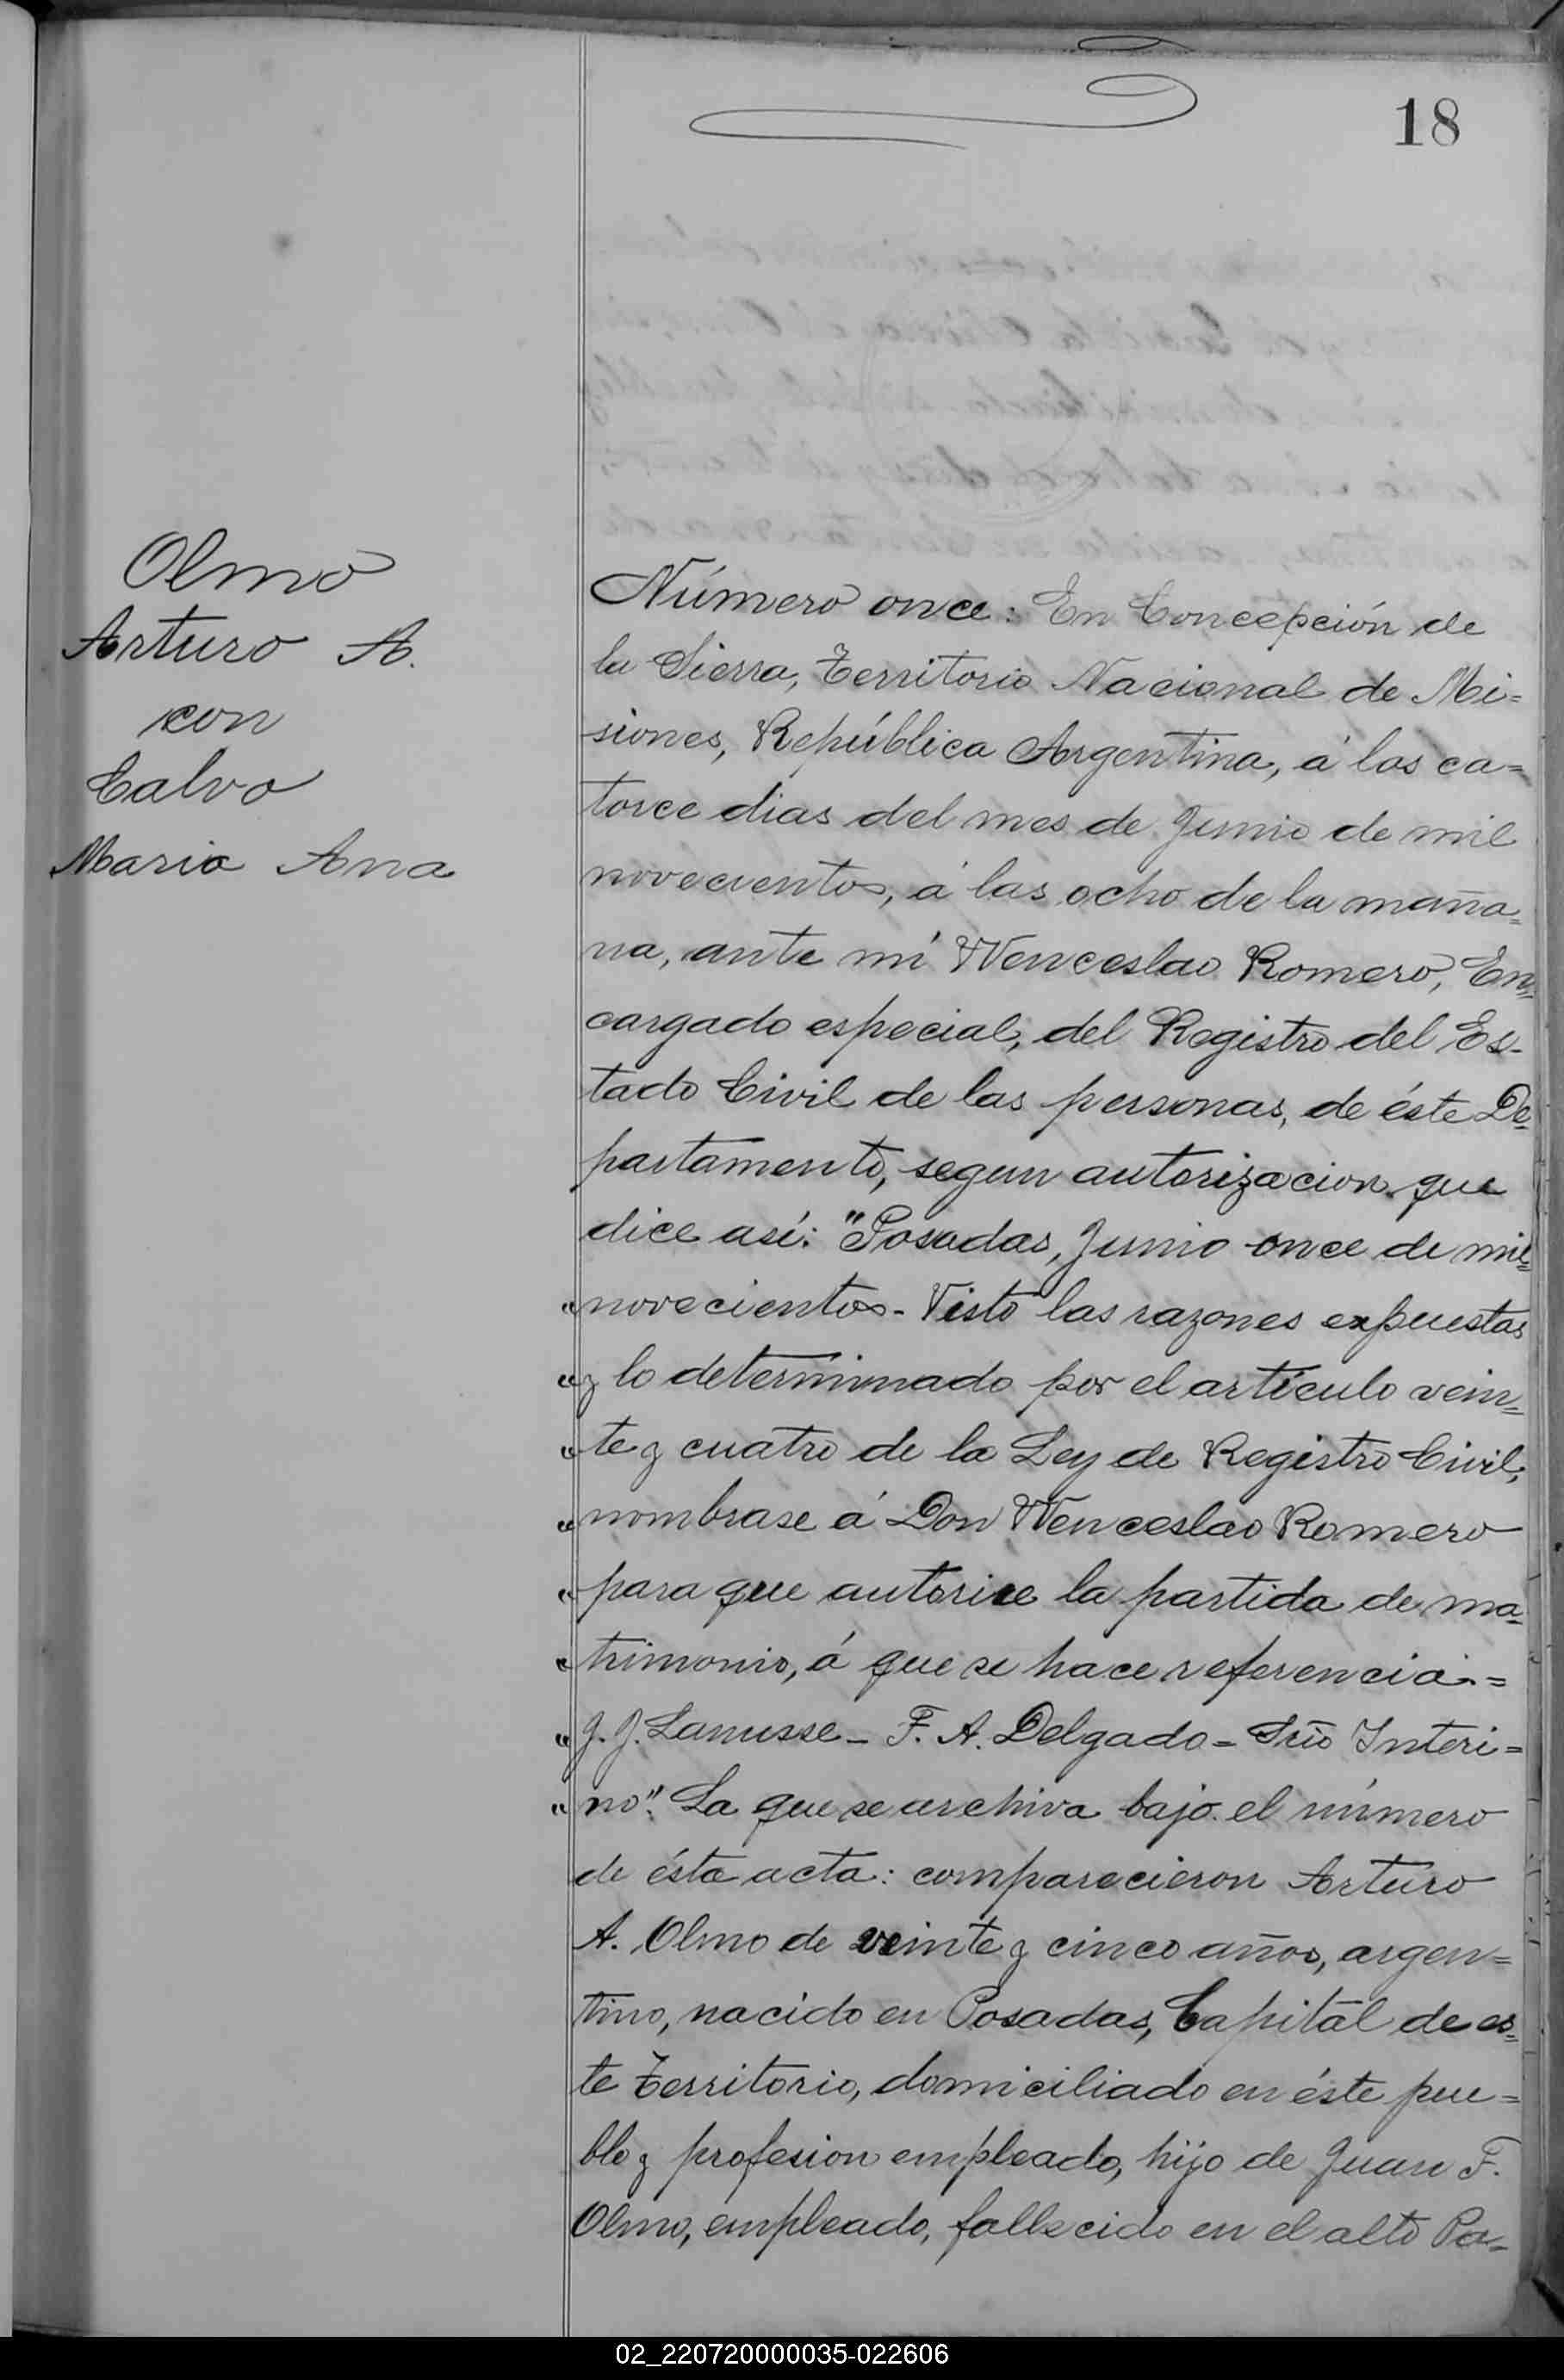 18
Olmo
Arturo A.
con
Calvo
Maria Ana
Número once: En Concepción de
la Sierra, Territorio Nacional de Mi=
siones, República Argentina, á los ca=
torce dias del mes de Junio de mil
novecientos, á las ocho de la maña=
na, ante mí Wenceslao Romero, En=
cargado especial, del Registro del Es-
tado Civil de las personas, de éste De=
partamento, segun autorizacion que
dice así: "Posadas, Junio once de mil=
"novecientos - Visto las razones expuestas
"y lo determinado por el artículo vein=
"te y cuatro de la Ley de Registro Civil,
"nombrase á Don Wenceslao Romero
"para que autorice la partida de ma=
"trimonio, á que se hace referencia.=
"J. J. Lanusse - F. A. Delgado = Srio Interi=
"no". La que se archiva bajo el número
de ésta acta: comparecieron Arturo
A. Olmo de veinte y cinco años, argen=
tino, nacido en Posadas, Capital de es=
te Territorio, domiciliado en éste pue=
blo y profesion empleado, hijo de Juan F.
Olmo, empleado, fallecido en el alto Pa=
02_220720000035-022606